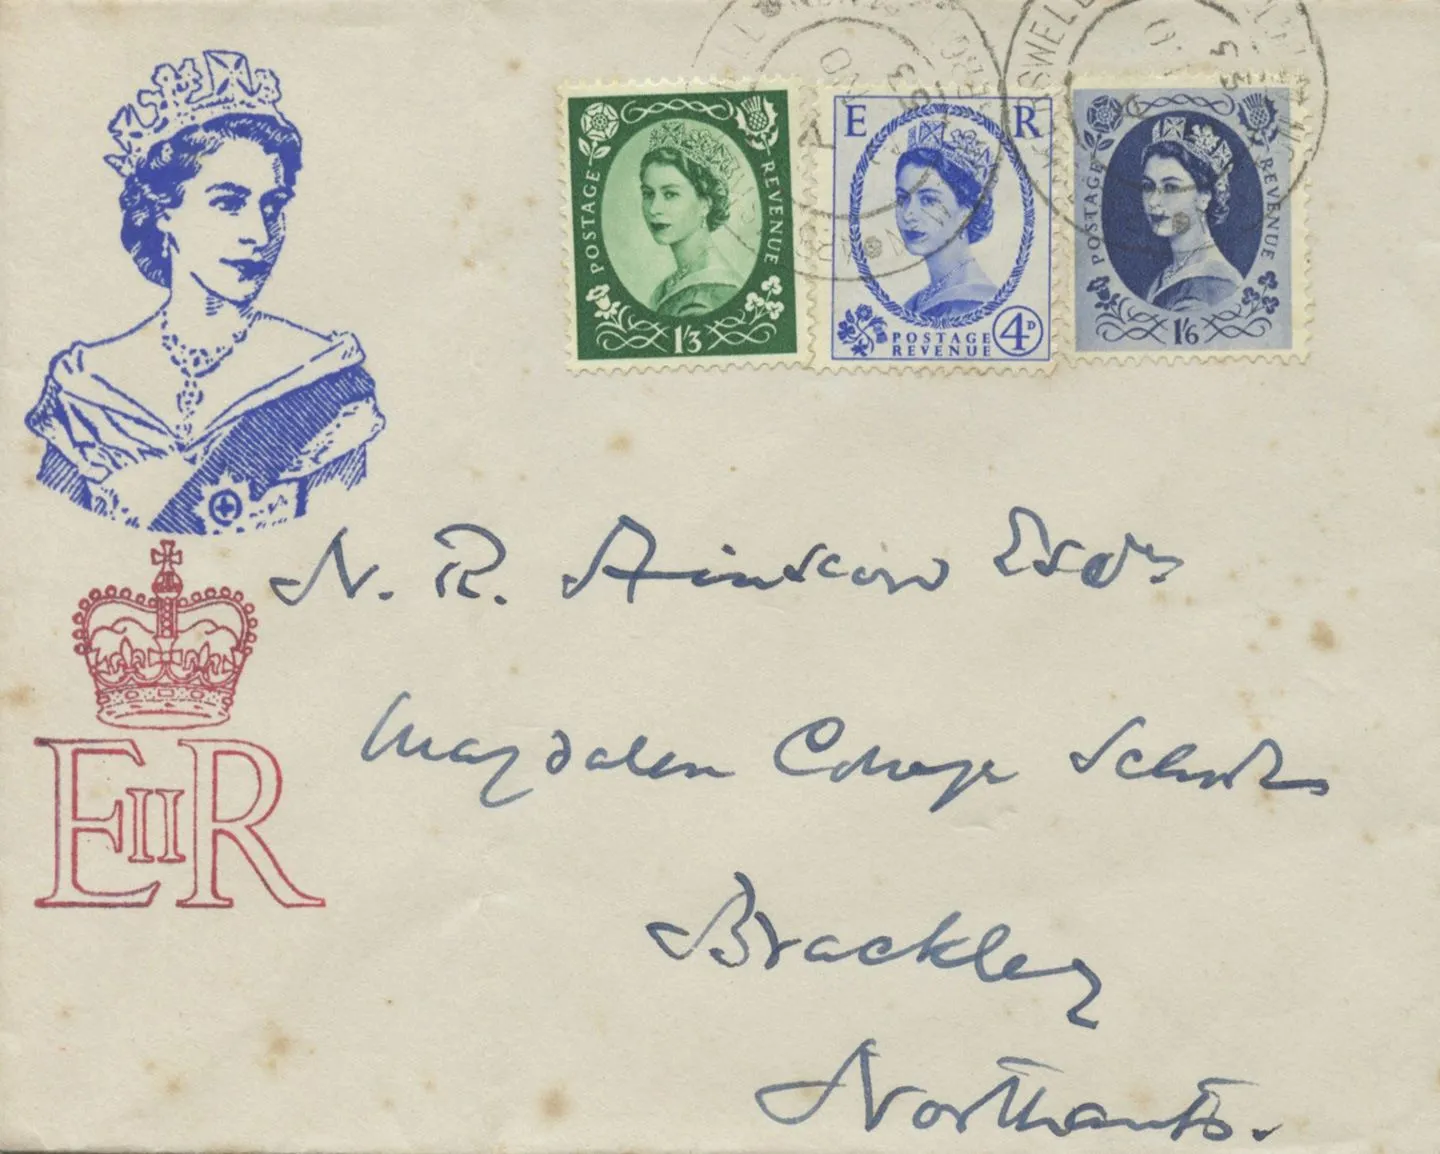 POSTAGE REVENUE 1/3
E R POSTAGE REVENUE 4D
POSTAGE REVENUE 1/6
N. R. Ainscow Esqre
Magdalen College School
Brackley
Northants.
EIIR